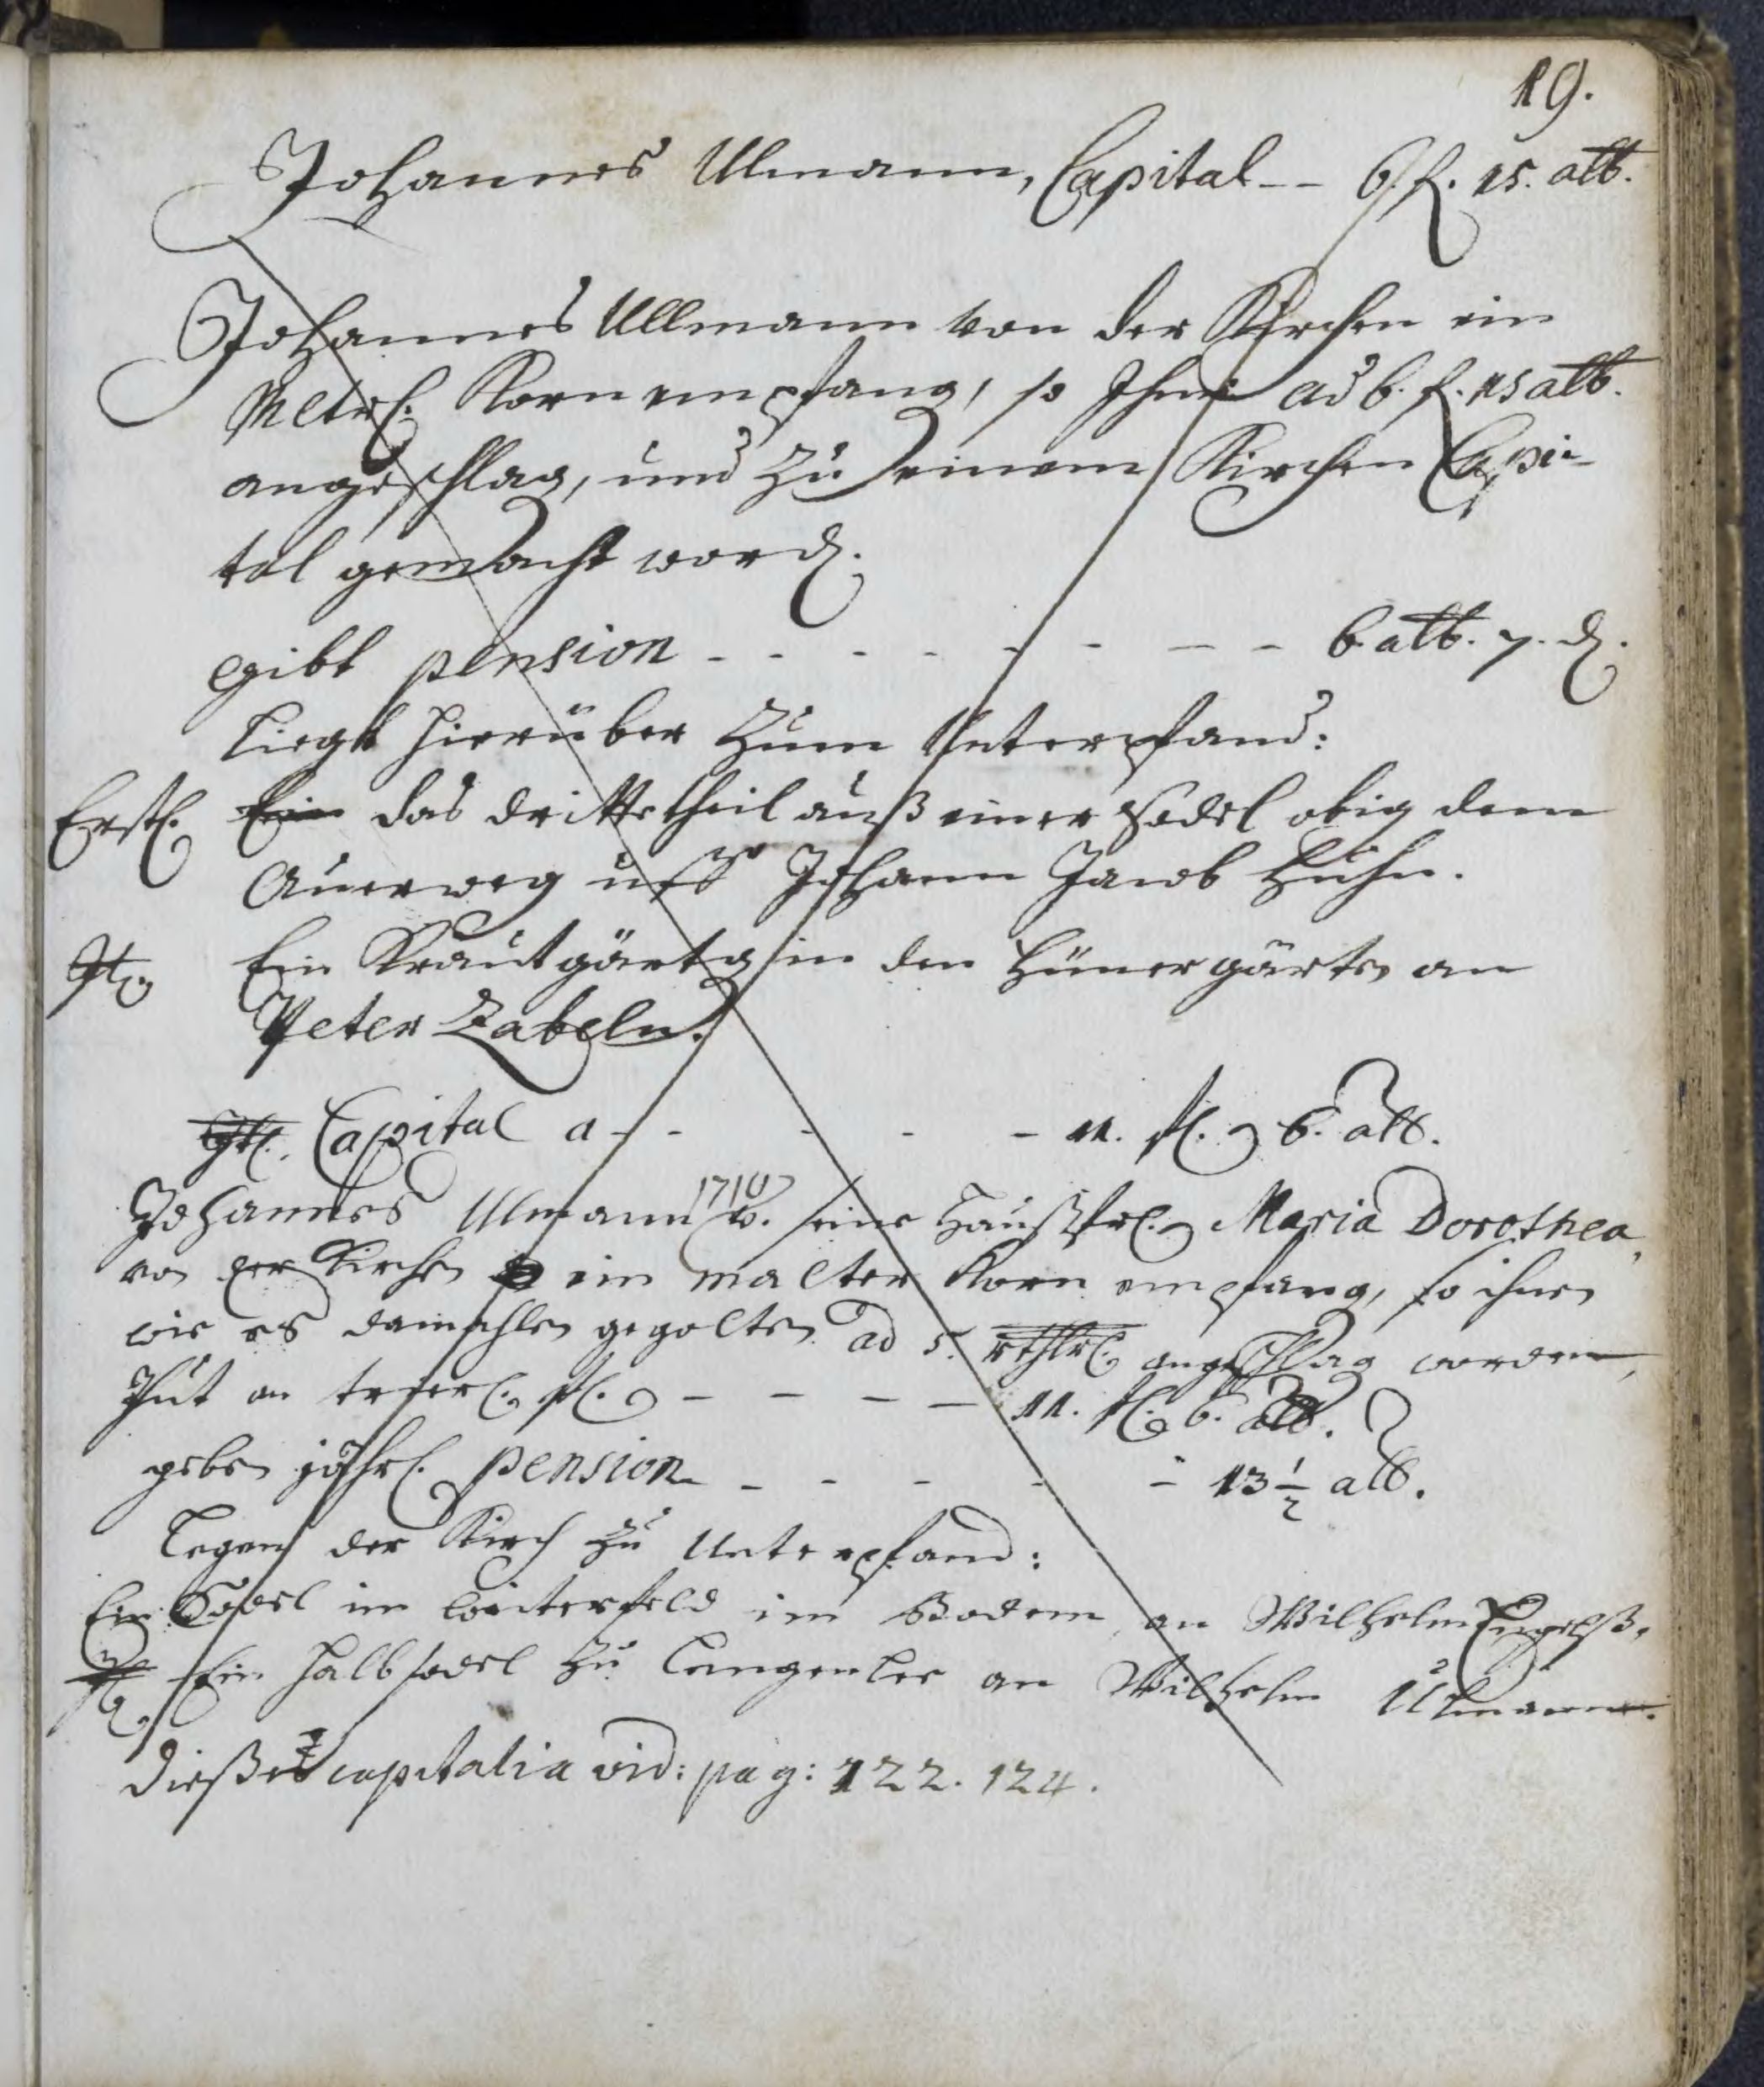 19.
Johannes Ulmann, Capital -- 6. f. 15. alb.
Johannes Ullmann von der Kirchen ein
Meltrl. Korn empfang, so Ihme ad 6. f. 15 alb.
angeschlag, und zu einem Kirchen Capi-
tal gemacht word.
gibt pension - - - - - - - - 6. alb. 7. d.
Liegt hierüber zum Unterpfand:
Erstl. Ein das drittetheil auß einer sodel obig dem
Auerweg uff Johann Jacob Huhn.
It. Ein Krautgärtg in den Hünergärten an
Peter Zabeln.
Capital a - - - - - 11. fl. 6. alb.
Johannes Ulmann 1710 u. seine Haußfrl. Maria Dorothea,
von der Kirchen ein malter Korn empfang, so ihnen
wie es damahlen gegolten ad 5. rthlr. angeschlag worden,
thut an trierl. fl. - - - - 11. fl. 6. alb.
geben jährl. pension - - - - - 13 1/2 alb.
Legen der Kirch zu Unterpfand:
Ein Sodel im winterfeld im Bodem an Wilhelm Engelß.
It. Ein halb sodel zu Langenler an Wilhelm Ulmann.
Dießes capitalia vid: pag: 122. 124.